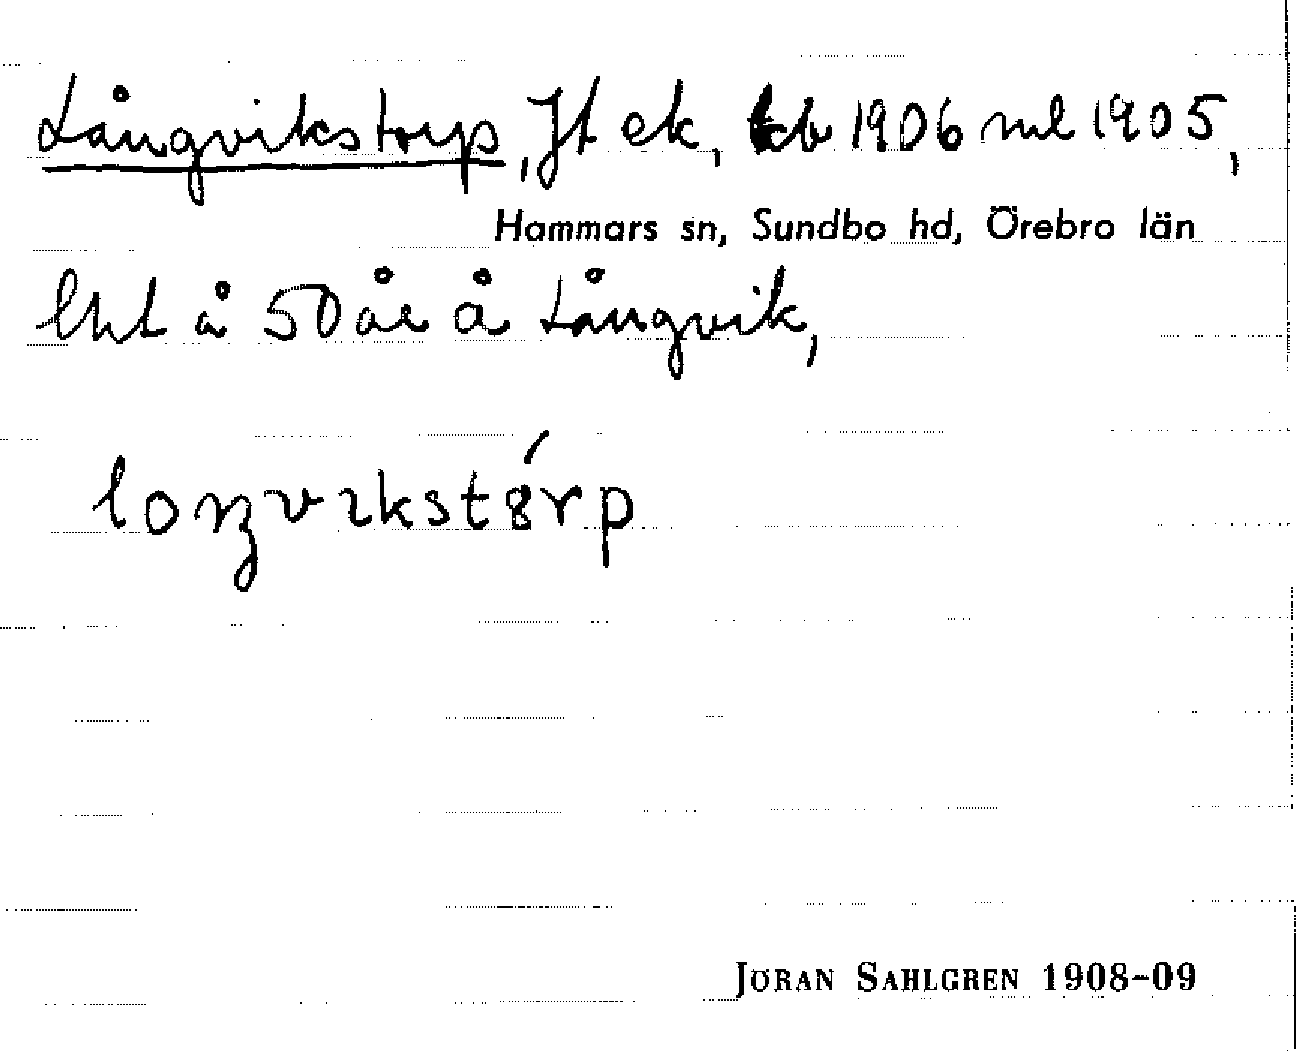 Långvikstorp, Jt ek, kb 1906 ml 1905,
Hammars sn, Sundbo hd, Örebro län
lht å 50 års å Långvik,
loŋvikstȣ́rp
JÖRAN SAHLGREN 1908-09